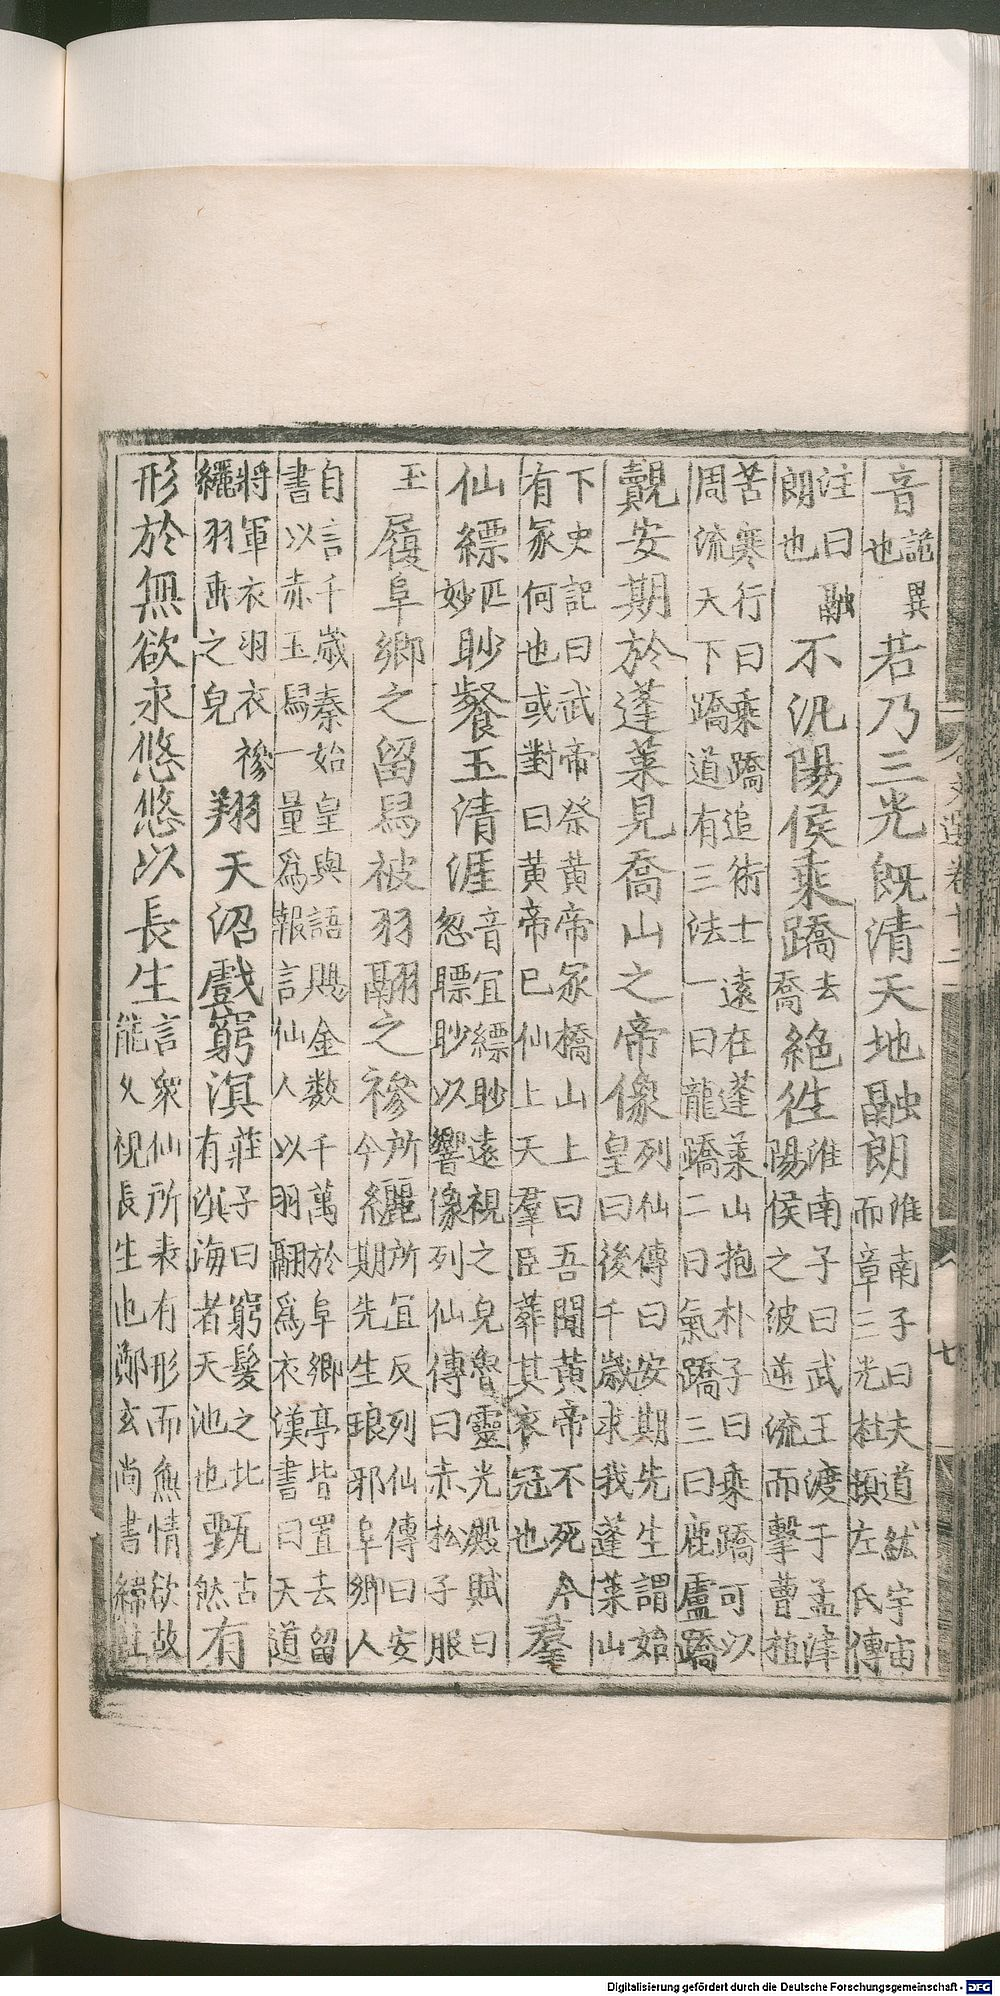 文選卷十二
七
音詭異也若乃三光既清天地融朗淮南子曰夫道紘宇宙而章三光杜預左氏傳
注曰融朗也不汎陽侯乘蹻去喬絕往淮南子曰武王渡于孟津陽侯之波逆流而擊曹植
苦寒行曰乘蹻追術士遠在蓬萊山抱朴子曰乘蹻可以周流天下蹻道有三法一曰龍蹻二曰氣蹻三曰鹿盧蹻
覿安期於蓬萊見喬山之帝像列仙傳曰安期先生謂始皇曰後千歲求我蓬萊山
下史記曰武帝祭黃帝冢橋山上曰吾聞黃帝不死今有冢何也或對曰黃帝已仙上天羣臣葬其衣冠也羣
仙縹匹妙眇餐玉清涯音宜縹眇遠視之皃魯靈光殿賦曰忽瞟眇以響像列仙傳曰赤松子服
玉履阜鄉之留舄被羽翮之襂所今纚所宜反列仙傳曰安期先生琅邪阜鄉人
自言千歲秦始皇與語賜金數千萬於阜鄉亭皆置去留書以赤玉舄一量為報言仙人以羽翮為衣漢書曰天道
將軍衣羽衣襂纚羽垂之皃翔天沼戲窮溟莊子曰窮髮之北有溟海者天池也甄占然有
形於無欲永悠悠以長生言眾仙所表有形而無情欲故能久視長生也鄭玄尚書緯注
Digitalisierung gefördert durch die Deutsche Forschungsgemeinschaft - DFG